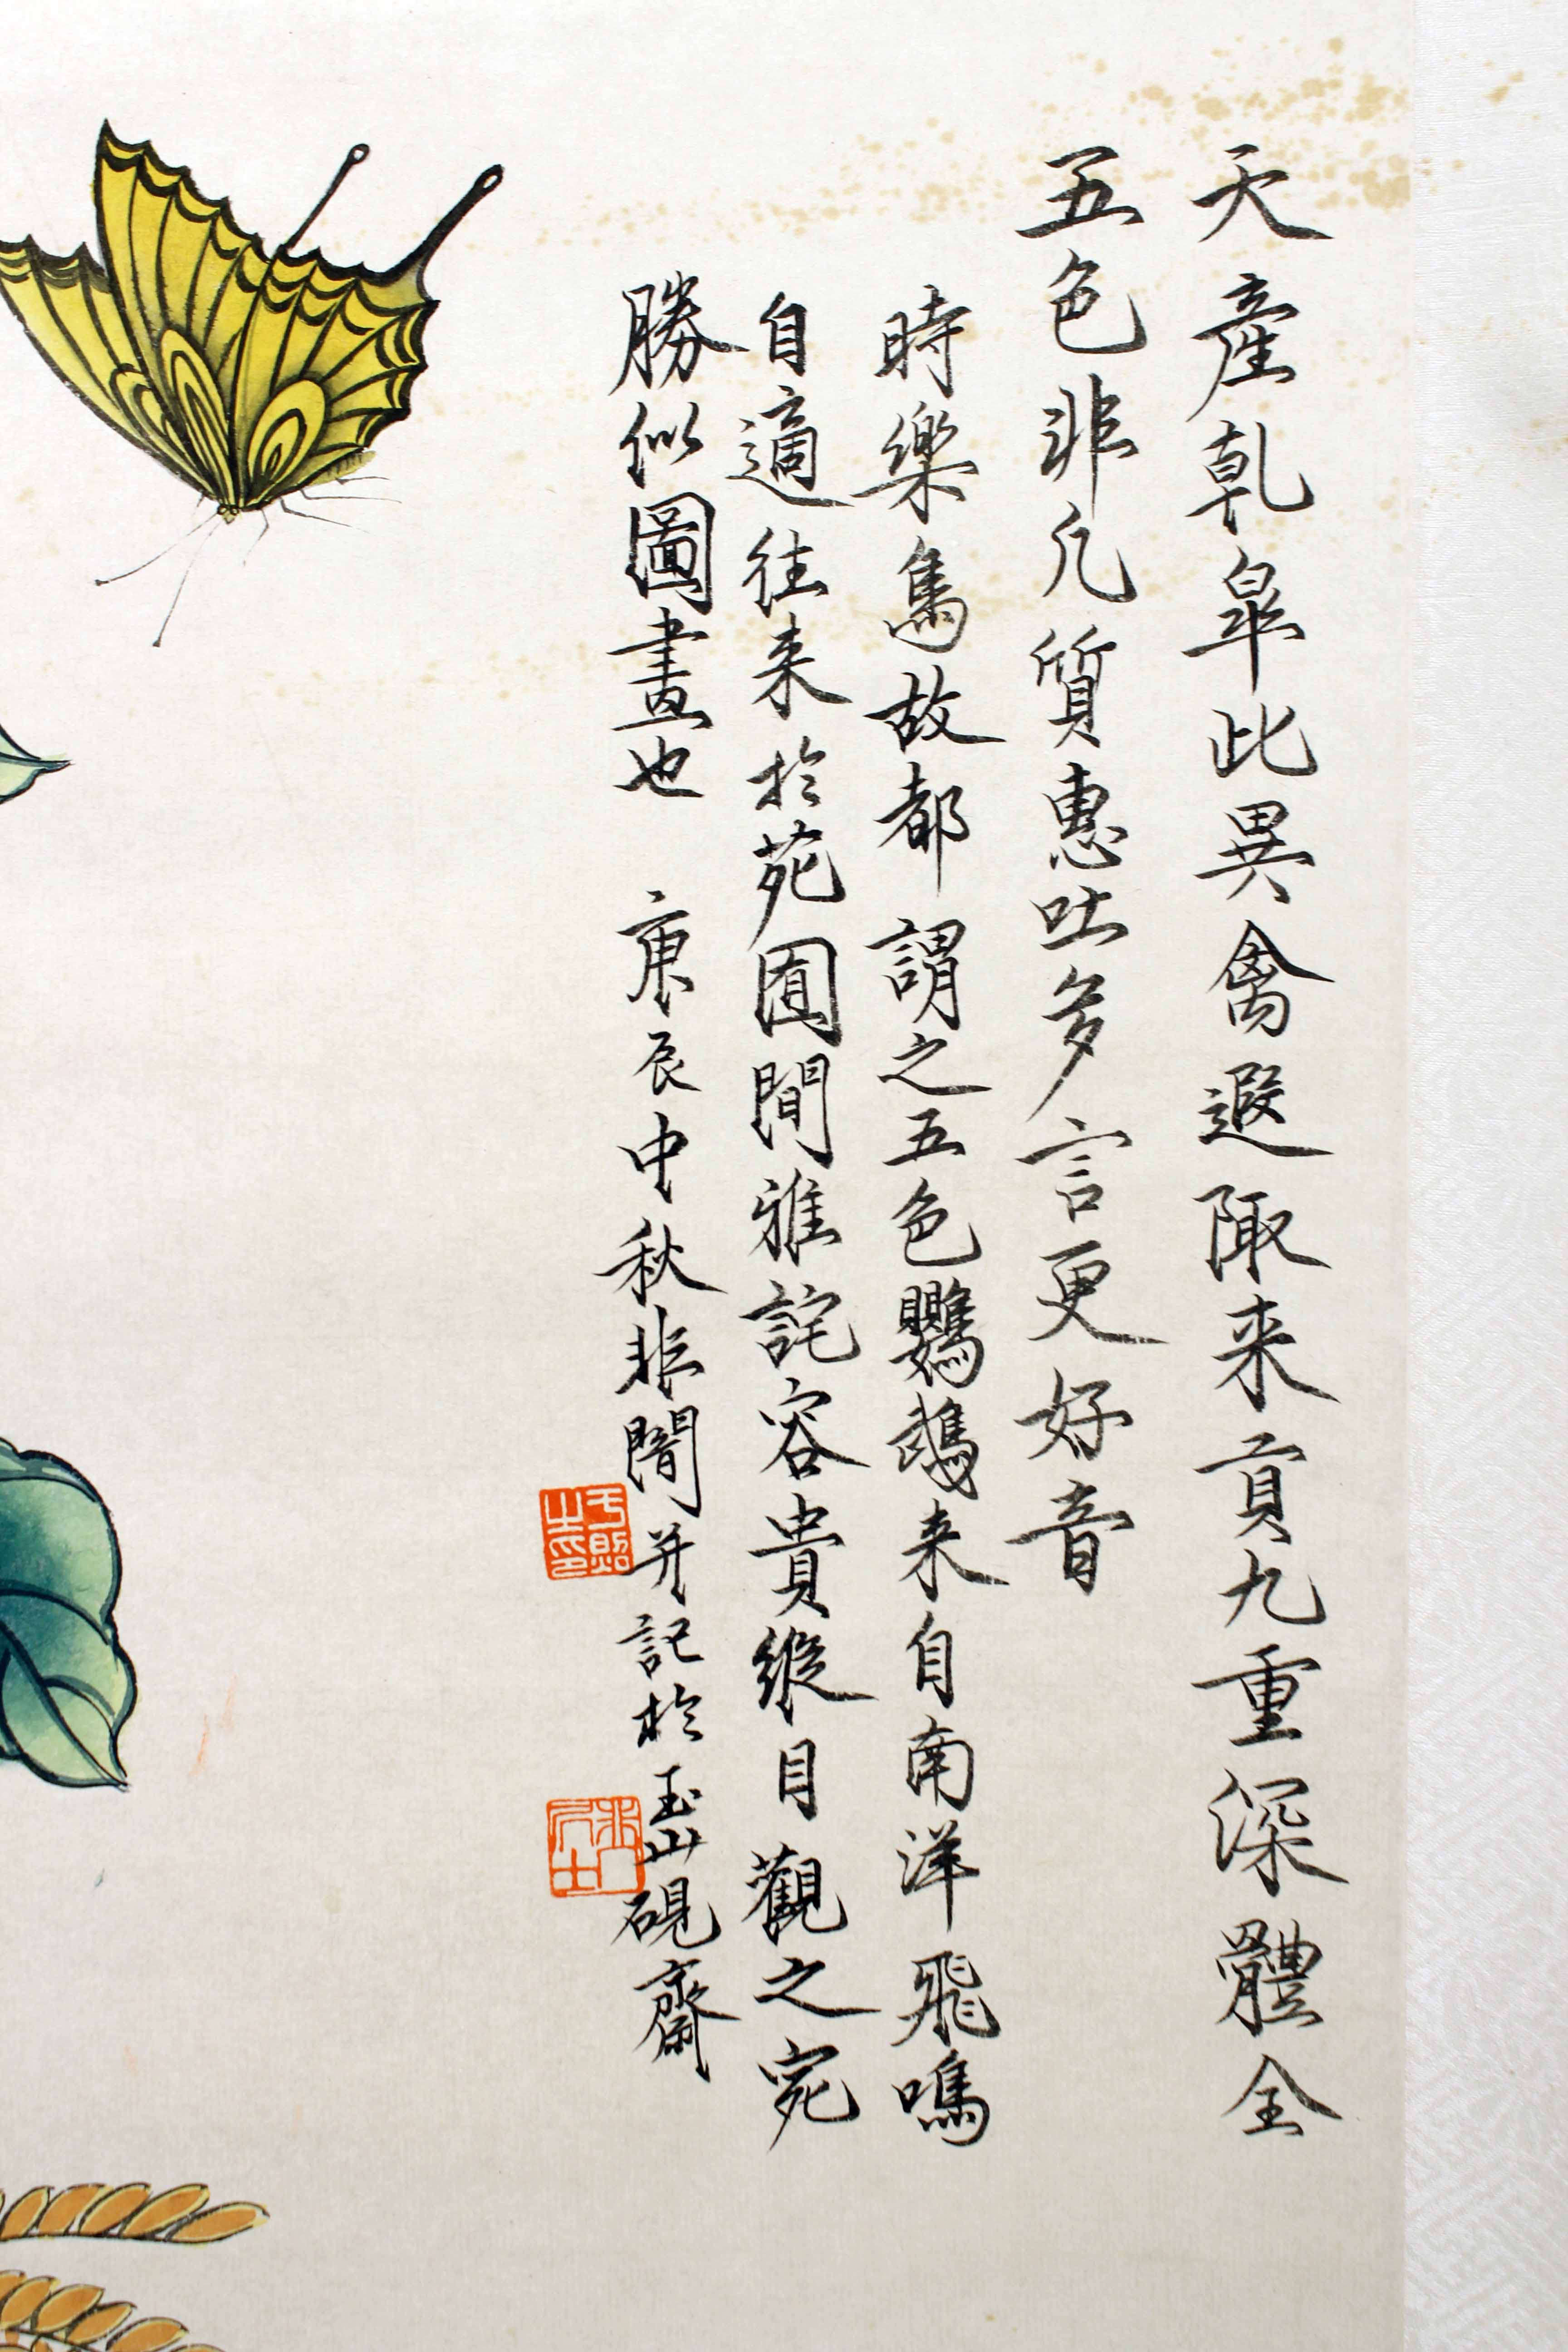 天產乾皐此異禽遐陬来貢九重深體全
五色非凡質惠吐多言更好音
時樂雋故都謂之五色鸚鵡来自南洋飛鳴
自適往来於苑囿間雅詫容貴縱目觀之宛
勝似圖畫也 庚辰中秋非闇并記於玉山硯齋
于照之印